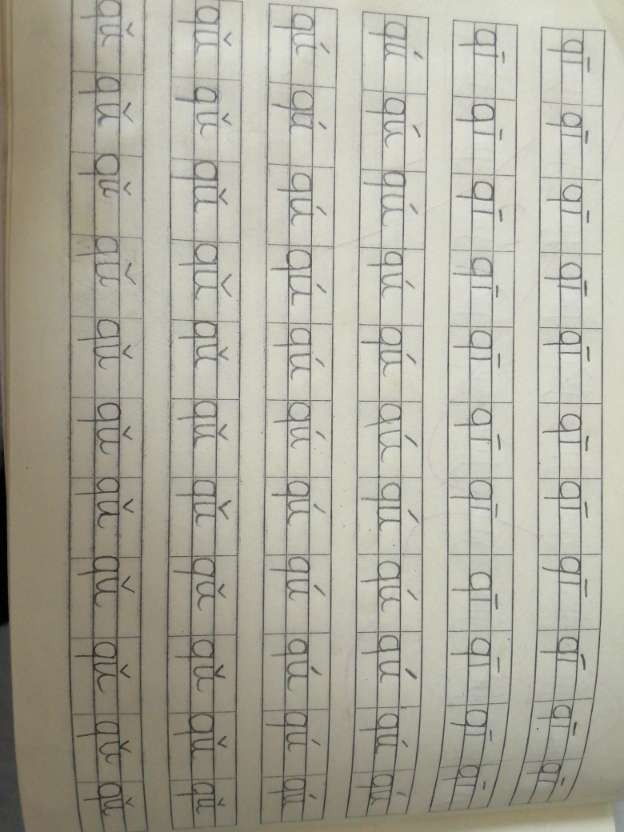 qī qī qī qī qī qī qī qī qī qī qī
qī qī qī qī qī qī qī qī qī qī qī
qú qú qú qú qú qú qú qú qú qú qú
qú qú qú qú qú qú qú qú qú qú qú
qǔ qǔ qǔ qǔ qǔ qǔ qǔ qǔ qǔ qǔ qǔ
qǔ qǔ qǔ qǔ qǔ qǔ qǔ qǔ qǔ qǔ qǔ